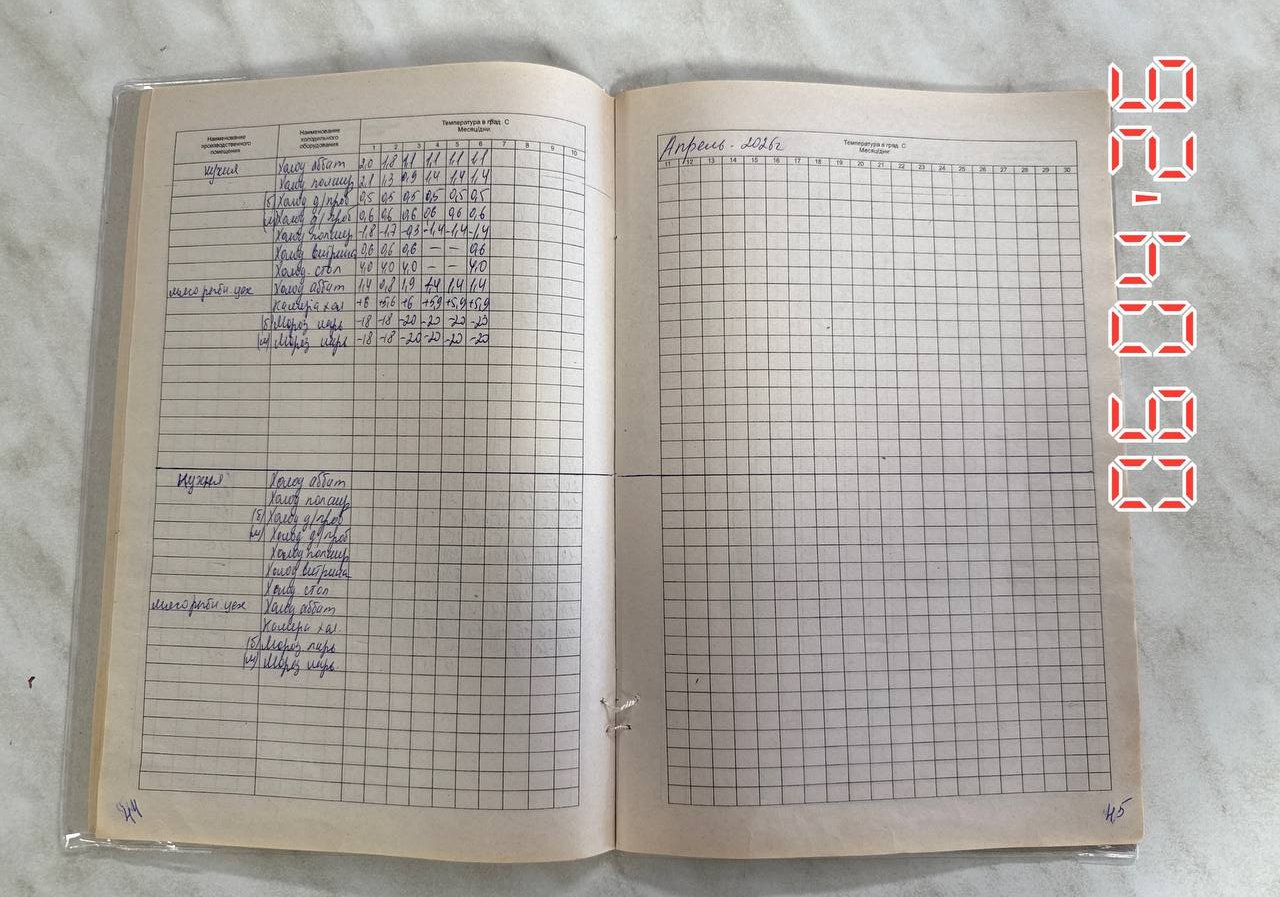 Наименование производственного помещения
Наименование холодильного оборудования
Температура в град. С
Месяц/дни
1 2 3 4 5 6 7 8 9 10
кухня Холод аббат 2,0 1,8 1,1 1,1 1,1 1,1
Холод полаир 2,1 1,3 0,9 1,4 1,4 1,4
(б) Холод д/проб 0,5 0,5 0,5 0,5 0,5 0,5
(м) Холод д/проб 0,6 0,6 0,6 0,6 0,6 0,6
Холод полаир -1,8 -1,7 -0,3 -1,4 -1,4 -1,4
Холод витрина 0,6 0,6 0,6 — — 0,6
Холод. стол 4,0 4,0 4,0 — — 4,0
мясо рыбн цех Холод аббат 1,4 0,8 1,9 1,4 1,4 1,4
Камера хол +6 +5,6 +6 +5,9 +5,9 +5,9
(б) Мороз ларь -18 -18 -20 -20 -20 -20
(м) Мороз ларь -18 -18 -20 -20 -20 -20
Кухня Холод аббат
Холод полаир
(б) Холод д/проб
(м) Холод д/проб
Холод полаир
Холод витрина
Холод стол
мясо рыбн. цех Холод аббат
Камера хол.
(б) Мороз ларь
(м) Мороз ларь
44
Апрель - 2026г
Температура в град. С
Месяц/дни
11 12 13 14 15 16 17 18 19 20 21 22 23 24 25 26 27 28 29 30
45
06 04 '26